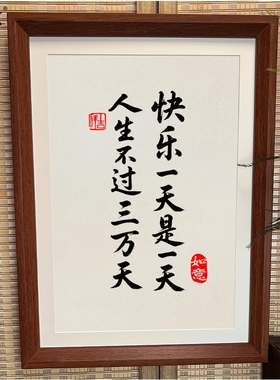 快乐一天是一天
人生不过三万天
如意